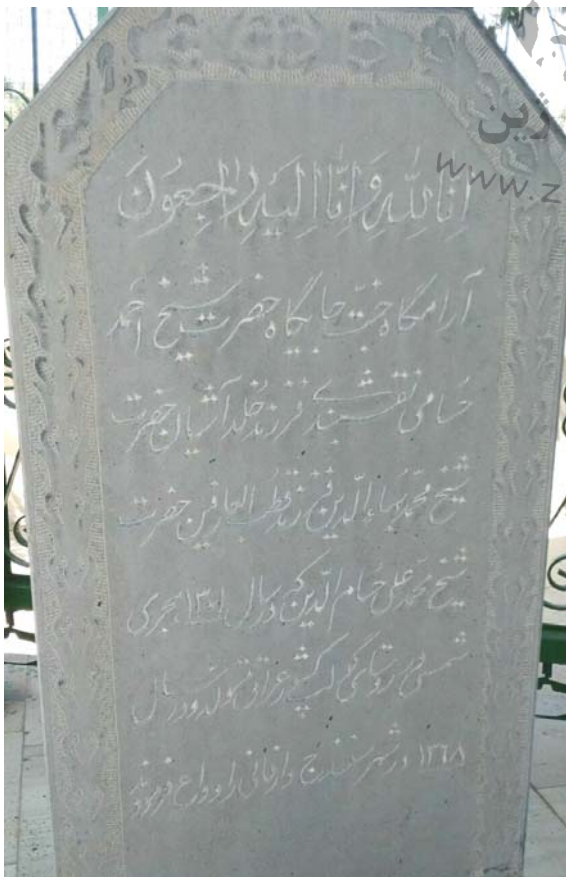 ژین
www.z
اِنّا لِلّٰهِ وَ اِنّا اِلَیهِ راجِعُونَ
آرامگاه جنّت جایگاه حضرت شیخ احمد
حسامی نقشبندی فرزند خُلد آشیان حضرت
شیخ محمّد بهاءالدّین فرزند قطب العارفین حضرت
شیخ محمّد علی حسام الدّین که در سال ۱۳۰۱ هجری
شمسی در روستای کشور عراق متولد و در سال
۱۳٦۸ در شهر سنندج دار فانی را وداع فرمودند